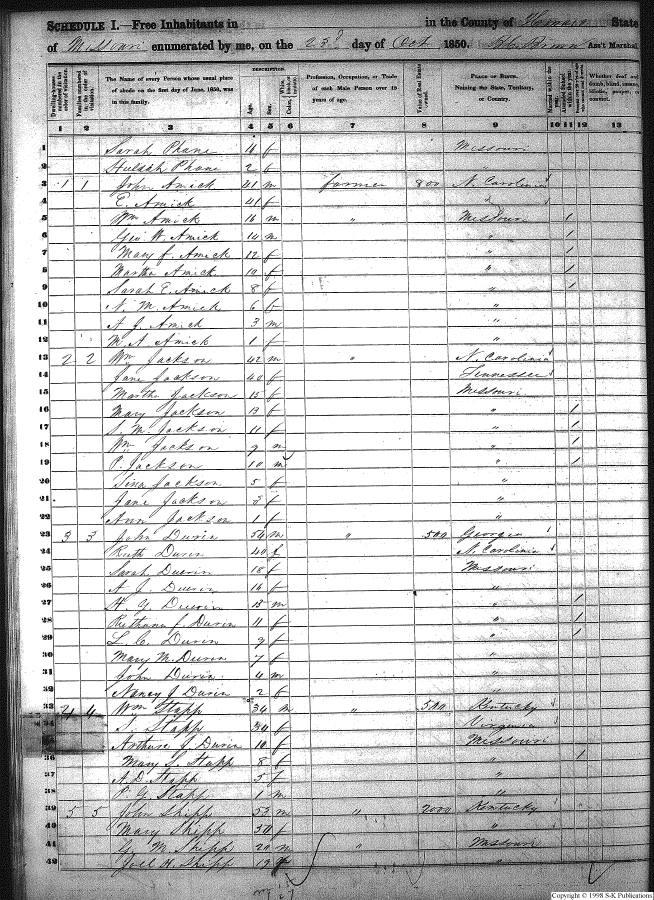 SCHEDULE I.—Free Inhabitants in in the County of State
of Missouri enumerated by me, on the 25 day of Oct 1850. Ass't Marshal
Dwelling-houses numbered in the order of visitation.
Families numbered in the order of visitation.
The Name of every Person whose usual place of abode on the first day of June, 1850, was in this family.
DESCRIPTION.
Age.
Sex.
Profession, Occupation, or Trade of each Male Person over 15 years of age.
Value of Real Estate owned.
PLACE OF BIRTH.
Naming the State, Territory, or Country.
Married within the year.
Attended School within the year.
Whether deaf and dumb, blind, insane, idiotic, pauper, or convict.
1 2 3 4 5 6 7 8 9 10 11 12 13
1 Sarah Phane 4 f Missouri
2 Phane 2 f
3 1 1 John Amick 41 m farmer 800 N. Carolina
4 E. Amick 41 f
5 Wm Amick 16 m " Missouri /
6 Geo W. Amick 14 m " /
7 Mary f. Amick 12 f " /
8 Martha Amick 10 f " /
9 Sarah E. Amick 8 f " /
10 N. M. Amick 6 f "
11 A J. Amick 3 m "
12 M. A Amick 1 f "
13 2 2 Wm Jackson 42 m " N. Carolina
14 Jane Jackson 40 f Tennessee
15 Martha Jackson 15 f Missouri
16 Mary Jackson 13 f " /
17 S. M. Jackson 11 f " /
18 Wm Jackson 9 m " /
19 P. Jackson 10 m " /
20 Sina Jackson 5 f "
21 Jane Jackson 3 f "
22 Ann Jackson 1 f "
23 3 3 John Durin 54 m " 500 Georgia
24 Ruth Durin 40 f N. Carolina
25 Sarah Durin 18 f Missouri
26 A J. Durin 16 f "
27 H. G. Durin 13 m " /
28 Ruthann f. Durin 11 f " /
29 L. C. Durin 9 f " /
30 Mary M. Durin 7 f "
31 John Durin 4 m "
32 Nancy J Durin 2 f "
33 4 4 Wm Stapp 34 m " 500 Kentucky
34 S. Stapp 34 f Virginia
35 Durin 10 f Missouri
36 Mary S. Stapp 8 f " /
37 A. D. Stapp 5 f "
38 P. G. Stapp 1 m "
39 5 5 John Shipp 53 m " 2000 Kentucky
40 Mary Shipp 50 f "
41 G. M. Shipp 20 m " Missouri
42 Joel H. Shipp 19 "
Copyright © 1998 S-K Publications